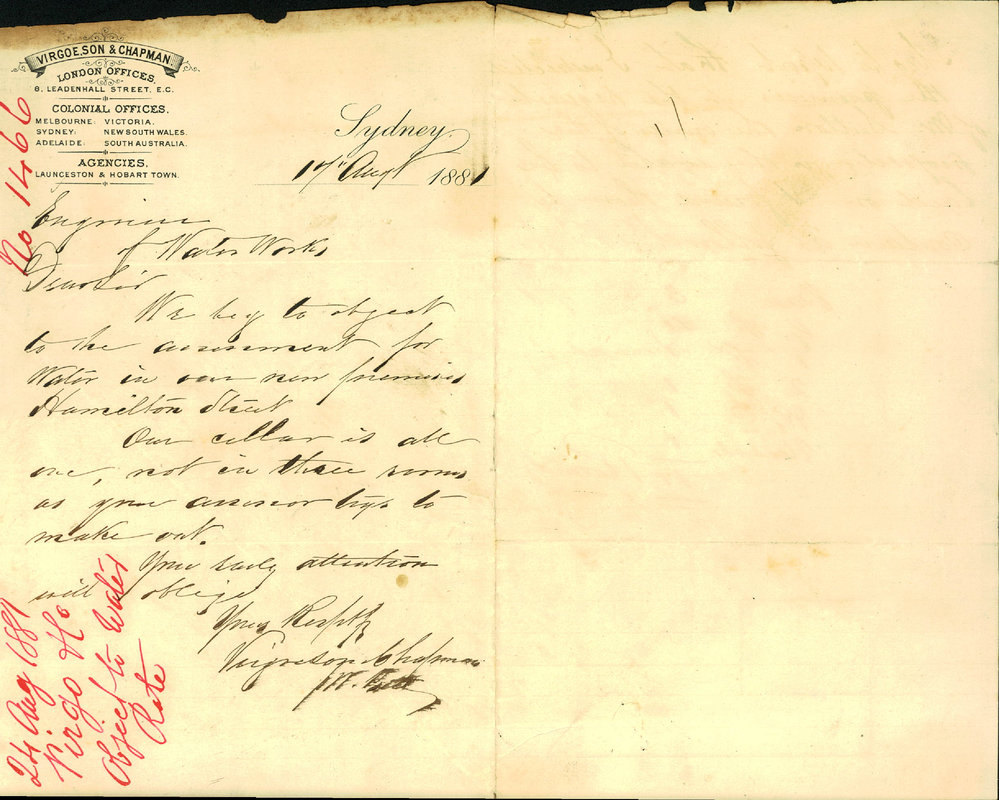 VIRGOE, SON & CHAPMAN.
LONDON OFFICES.
8. LEADENHALL STREET, E.C.
COLONIAL OFFICES.
MELBOURNE: VICTORIA.
SYDNEY: NEW SOUTH WALES.
ADELAIDE: SOUTH AUSTRALIA.
AGENCIES.
LAUNCESTON & HOBART TOWN.
No 1466
Sydney.
17th Augt 1881
Engineer
of Water Works
Dear Sir
We beg to object
to the assessment for
Water in our new premises
Hamilton Street
Our cellar is all
one, not in three rooms
as your assessor trys to
make out.
Your early attention
will oblige
Yours Respfy
Virgoe Son & Chapman
24 Aug 1881
Virgo & Co
Object to Water
Rate